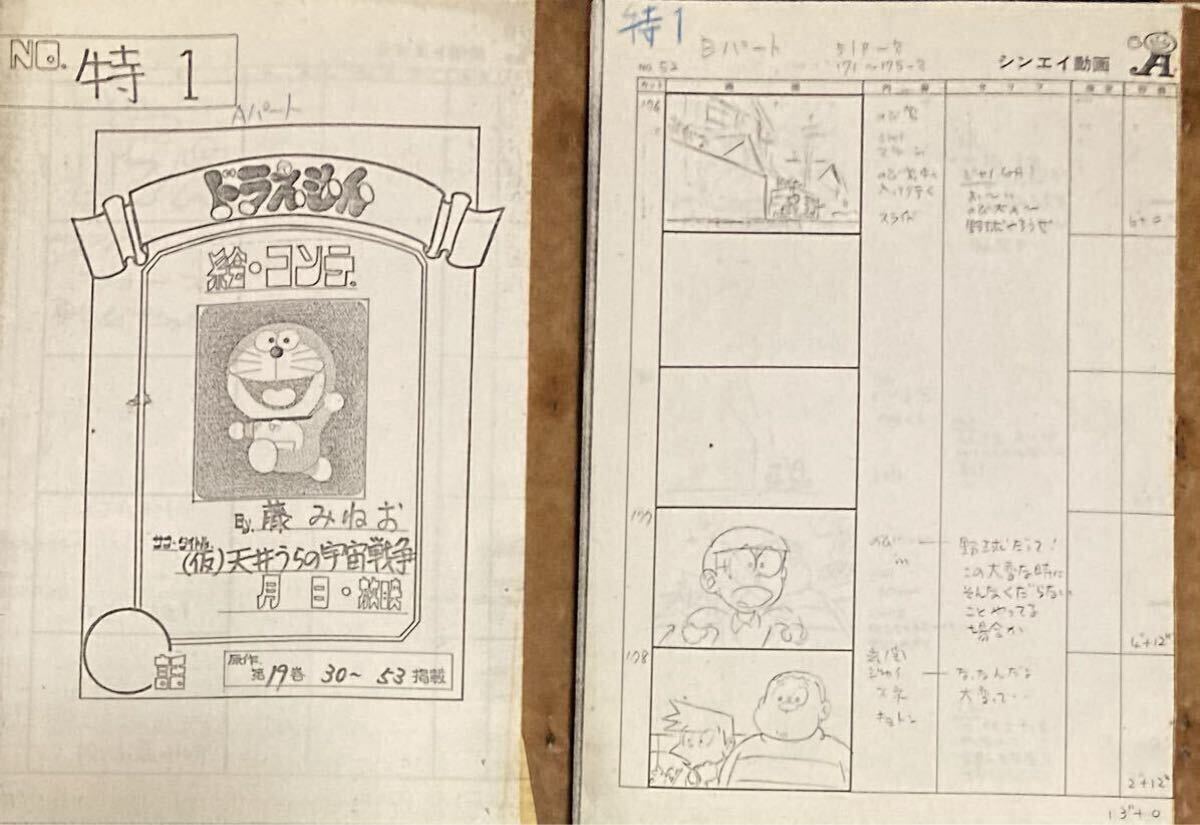 NO. 特 1
Aパート
ドラえもん
絵・コンテ.
By. 藤 みねお
サブ・タイトル (仮)天井うらの宇宙戦争
月 日・放映
話
原作. 第19巻 30～53 掲載
特1
Bパート
171～175
NO. 52
シンエイ動画
A
カット 画面 内容 セリフ 秒数
176
スライド
おーい
のび太ぁ〜
野球やろうぜ
6+0
177
のび
野球だって!
この大変な時に
そんなくだらない
ことやってる
場合か
4"+12"
178
ジャイ
スネ
キョトン
な、なんだよ
大変って‥
2"+12"
13"+0